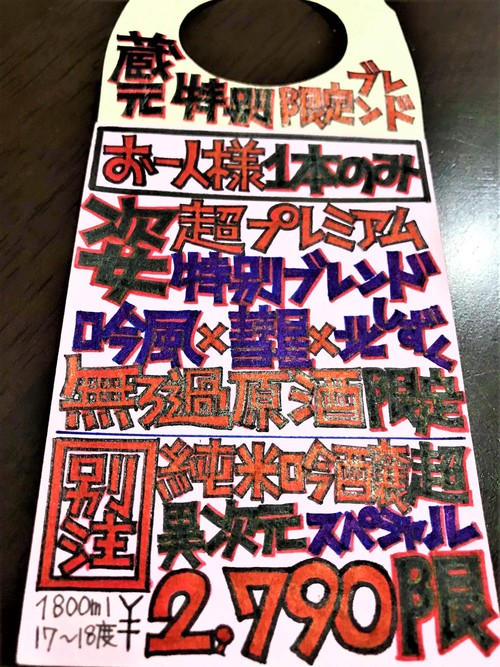 蔵元 特別 限定 ブレンド
お一人様1本のみ
姿 超プレミアム
特別ブレンド
吟風×彗星×きたしずく
無ろ過原酒 限定
別注 純米吟醸超
異次元スペシャル
1800ml ¥2,790限
17〜18度